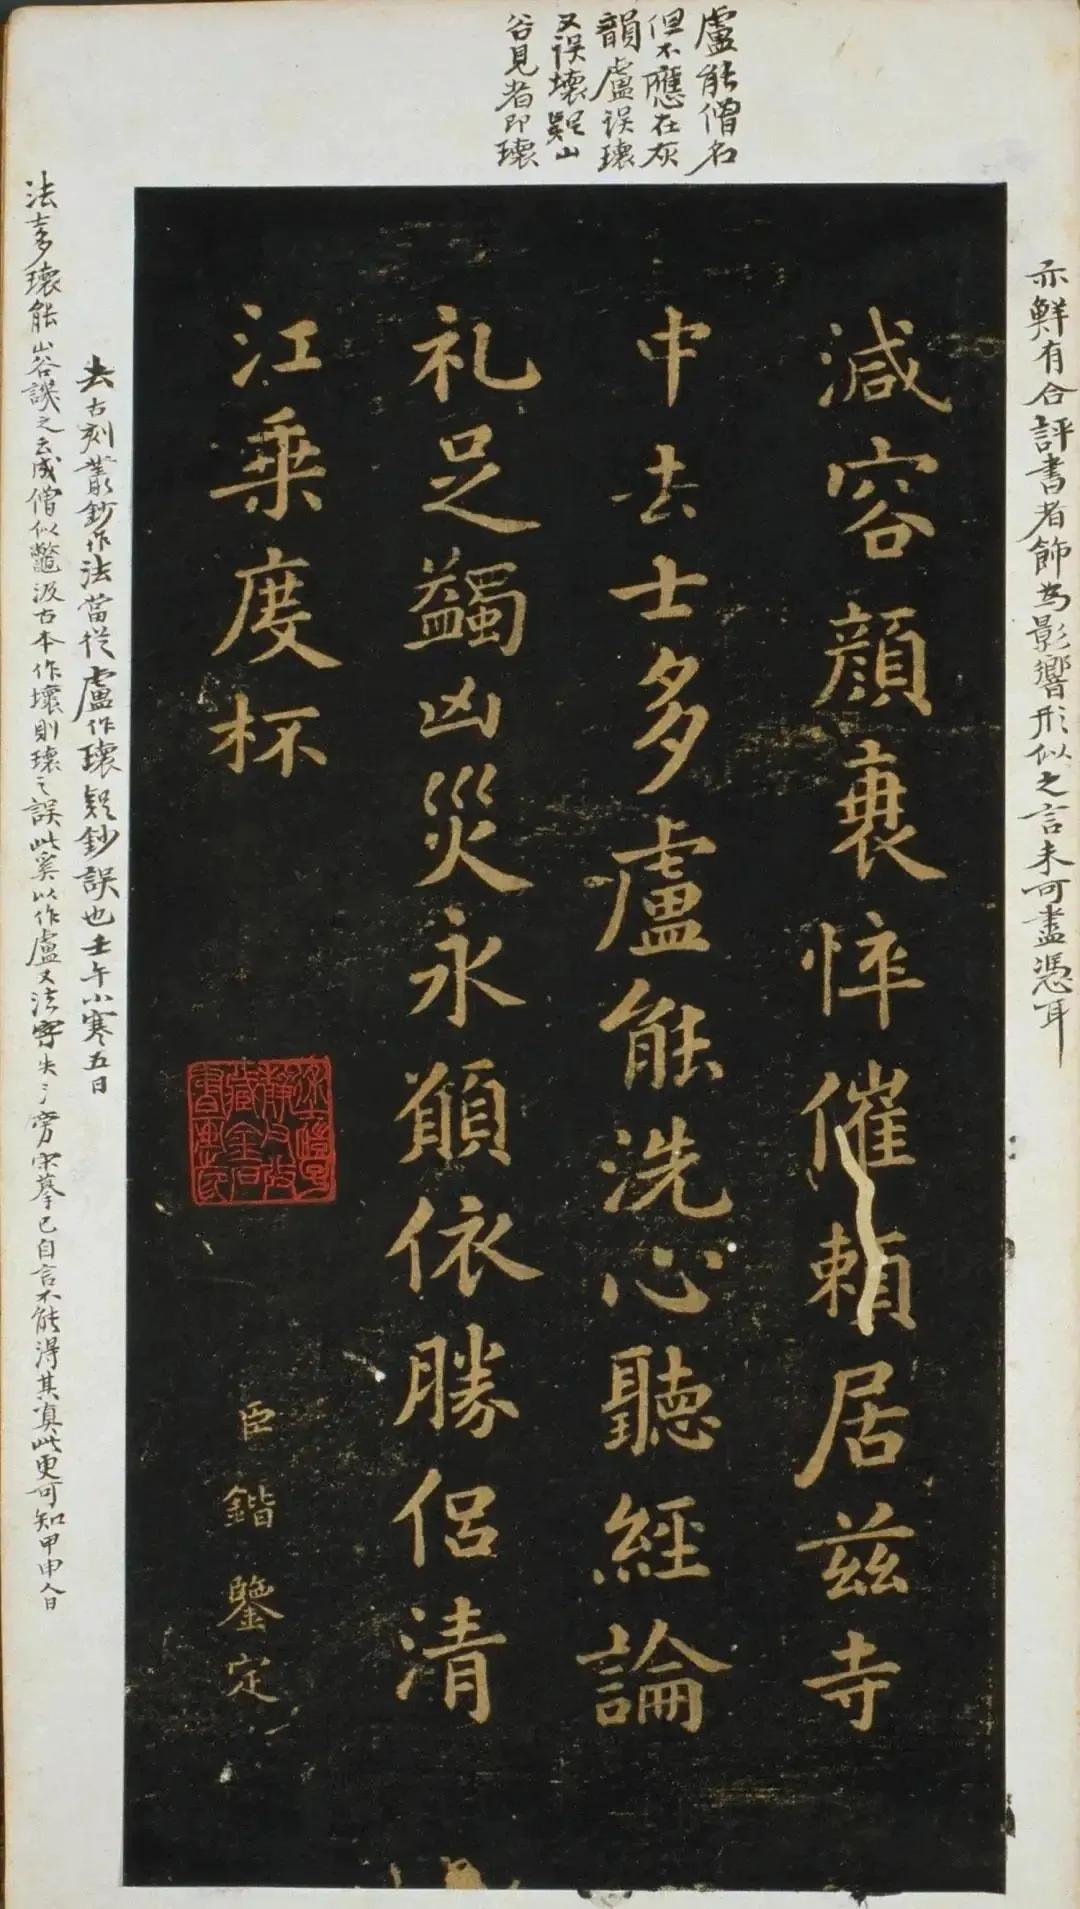 盧能僧名
但不應在灰
韻盧误瓌
又误壞疑山
谷見者即瓌
亦鮮有合評書者飾為影響形似之言未可盡憑耳
減容顔衰悴催頼居兹寺
中去士多盧能洗心聽經論
礼足蠲凶災永願依勝侣清
江乗度杯
臣鍇鑒定
去古刻叢鈔作法當從盧作瓌疑鈔誤也壬午小寒五日
法多瓌能山谷譏之云成僧似鼈汲古本作壞則瓌之誤此奚以作盧又法字失氵旁宋摹已自言不能得其真此更可知甲申人日